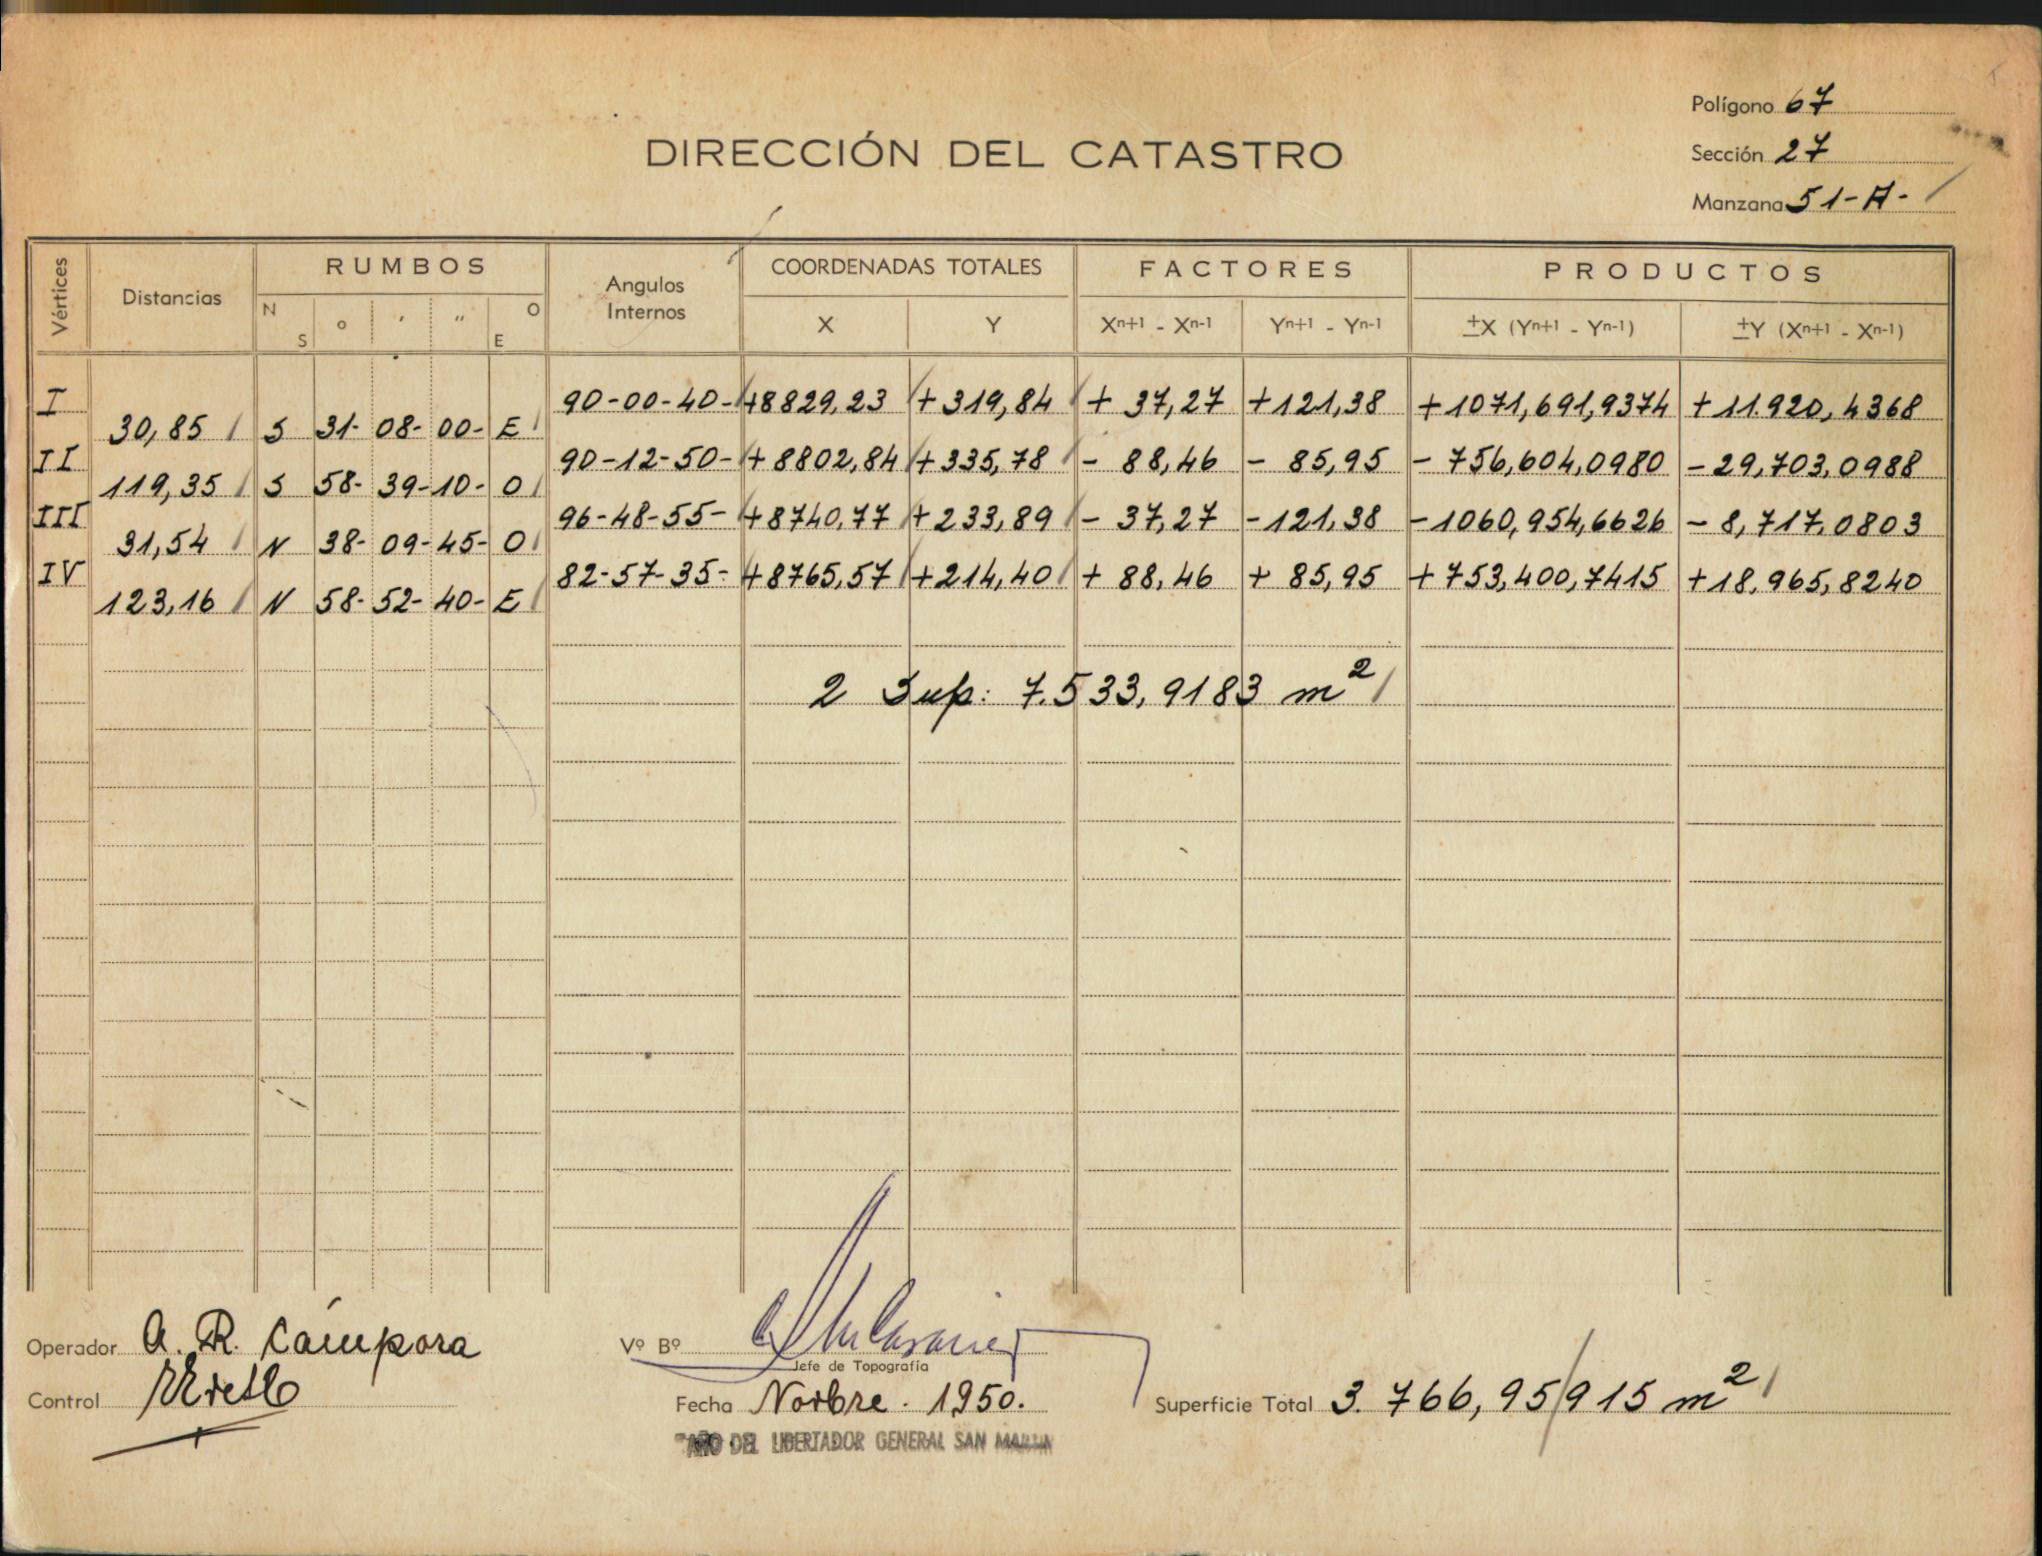 Polígono 67
DIRECCIÓN DEL CATASTRO
Sección 27
Manzana 51-A-
Vértices
Distancias
RUMBOS
N S o ' " O E
Angulos Internos
COORDENADAS TOTALES
X Y
FACTORES
Xn+1 - Xn-1 Yn+1 - Yn-1
PRODUCTOS
±X (Yn+1 - Yn-1) ±Y (Xn+1 - Xn-1)
I 90-00-40- +8829,23 +319,84 + 37,27 +121,38 +1071,691,9374 +11.920,4368
30,85 S 31- 08- 00- E
II 90-12-50- +8802,84 +335,78 - 88,46 - 85,95 - 756,604,0980 -29,703,0988
119,35 S 58- 39- 10- O
III 96-48-55- +8740,77 +233,89 - 37,27 -121,38 -1060,954,6626 - 8,717,0803
31,54 N 38- 09- 45- O
IV 82-57-35- +8765,57 +214,40 + 88,46 + 85,95 +753,400,7415 +18.965,8240
123,16 N 58- 52- 40- E
2 Sup: 7.533,9183 m²
Operador A. R. Cámpora
Vº Bº
Jefe de Topografía
Control
Fecha Novbre. 1950.
Superficie Total 3.766,95/915 m²
"AÑO DEL LIBERTADOR GENERAL SAN MARTIN